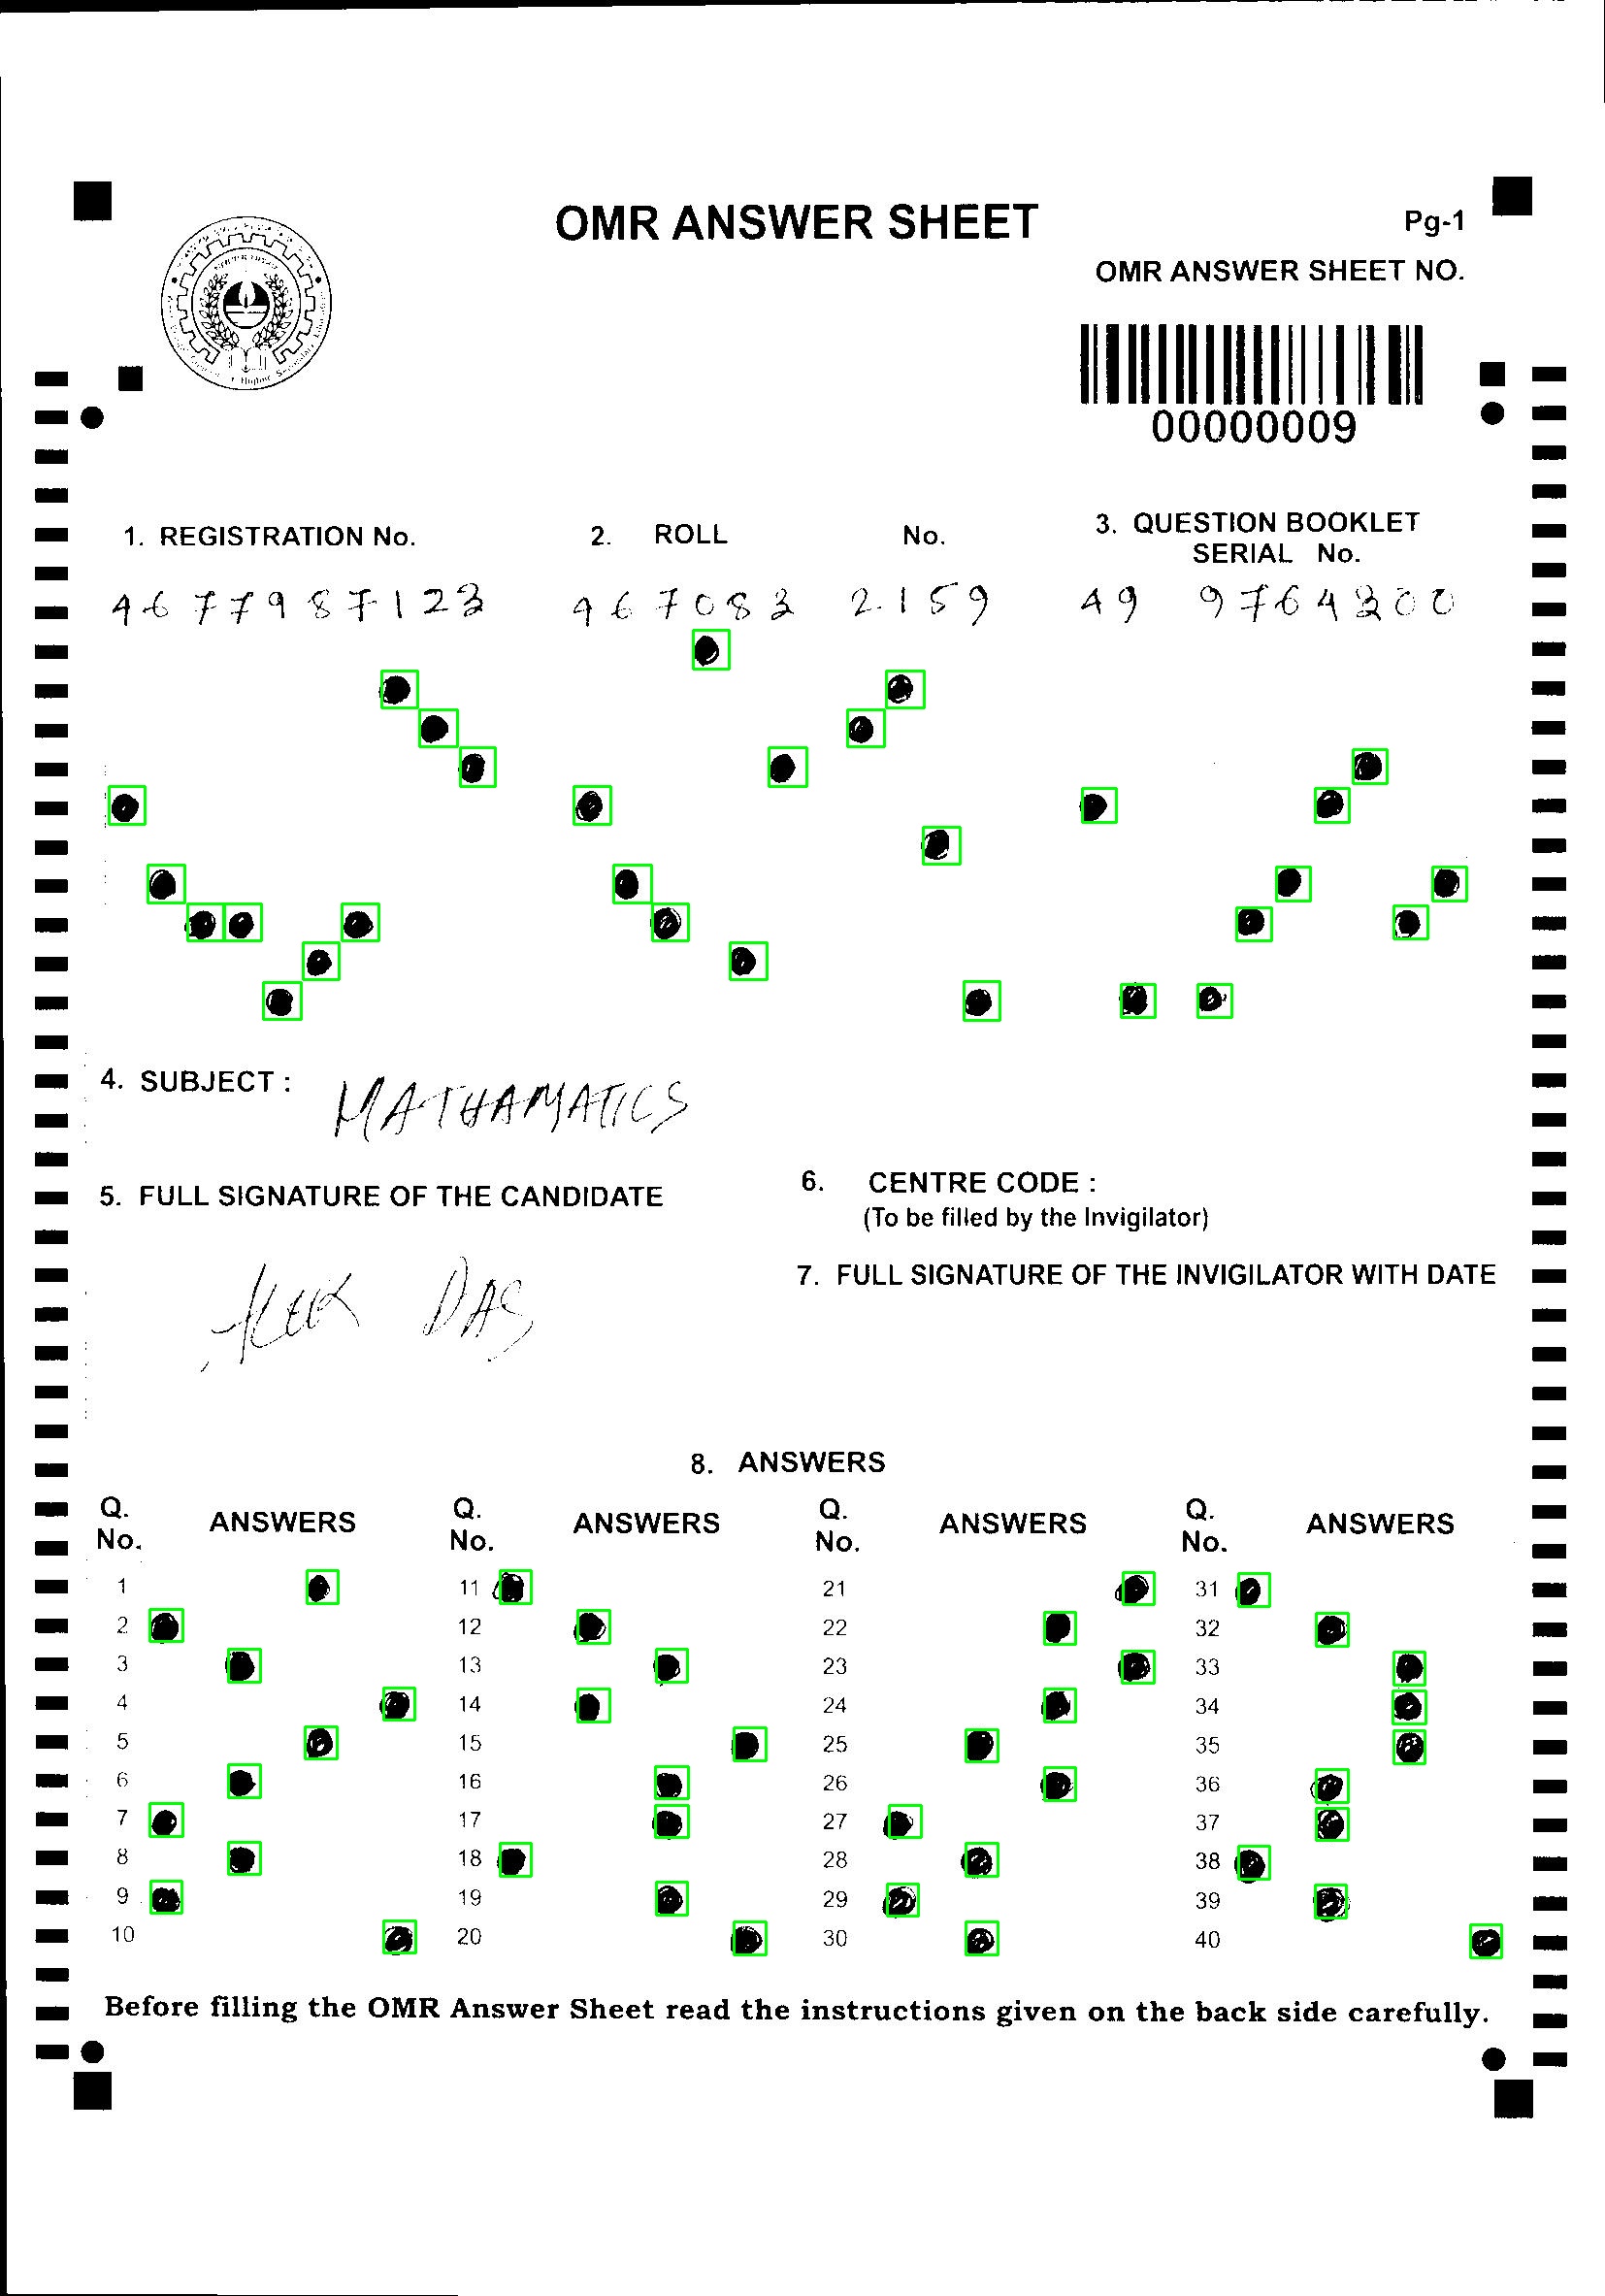 OMR ANSWER SHEET
Pg-1
OMR ANSWER SHEET NO.
00000009
1. REGISTRATION No.
2. ROLL No.
3. QUESTION BOOKLET
SERIAL No.
4677987123
467083 2159
49 9764300
4. SUBJECT :
MATHAMATICS
5. FULL SIGNATURE OF THE CANDIDATE
6. CENTRE CODE :
(To be filled by the Invigilator)
7. FULL SIGNATURE OF THE INVIGILATOR WITH DATE
DAS
8. ANSWERS
Q. Q. Q. Q.
ANSWERS ANSWERS ANSWERS ANSWERS
No. No. No. No.
1 11 21 31
2 12 22 32
3 13 23 33
4 14 24 34
5 15 25 35
6 16 26 36
7 17 27 37
8 18 28 38
9 19 29 39
10 20 30 40
Before filling the OMR Answer Sheet read the instructions given on the back side carefully.